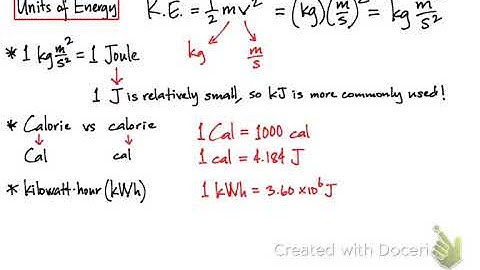 Units of Energy
K.E. = 1/2 mv² = (kg)(m/s)² = kg m²/s²
kg m/s
* 1 kg m²/s² = 1 Joule
1 J is relatively small, so kJ is more commonly used!
* Calorie vs calorie
Cal cal
1 Cal = 1000 cal
1 cal = 4.184 J
* kilowatt-hour (kWh) 1 kWh = 3.60 x10⁶ J
Created with Doceri